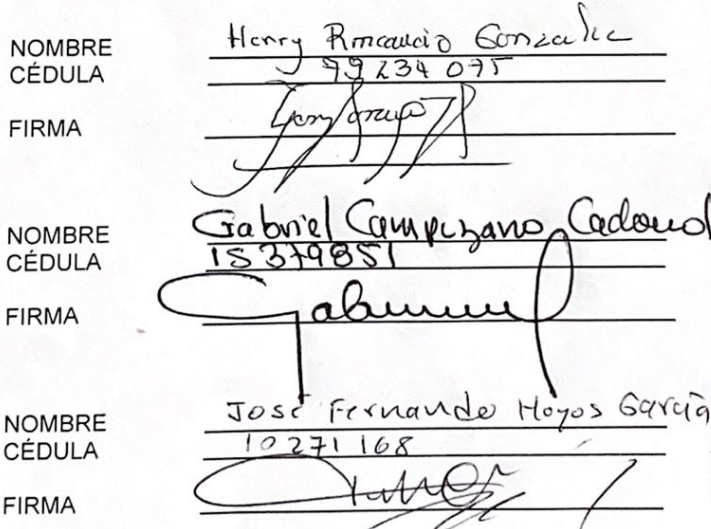 NOMBRE Henry Rincancio Gonzalez
CÉDULA 79 234 075
FIRMA
NOMBRE Gabriel Campuzano Cadavid
CÉDULA 15379851
FIRMA Gabriel
NOMBRE José Fernando Hoyos García
CÉDULA 10271168
FIRMA